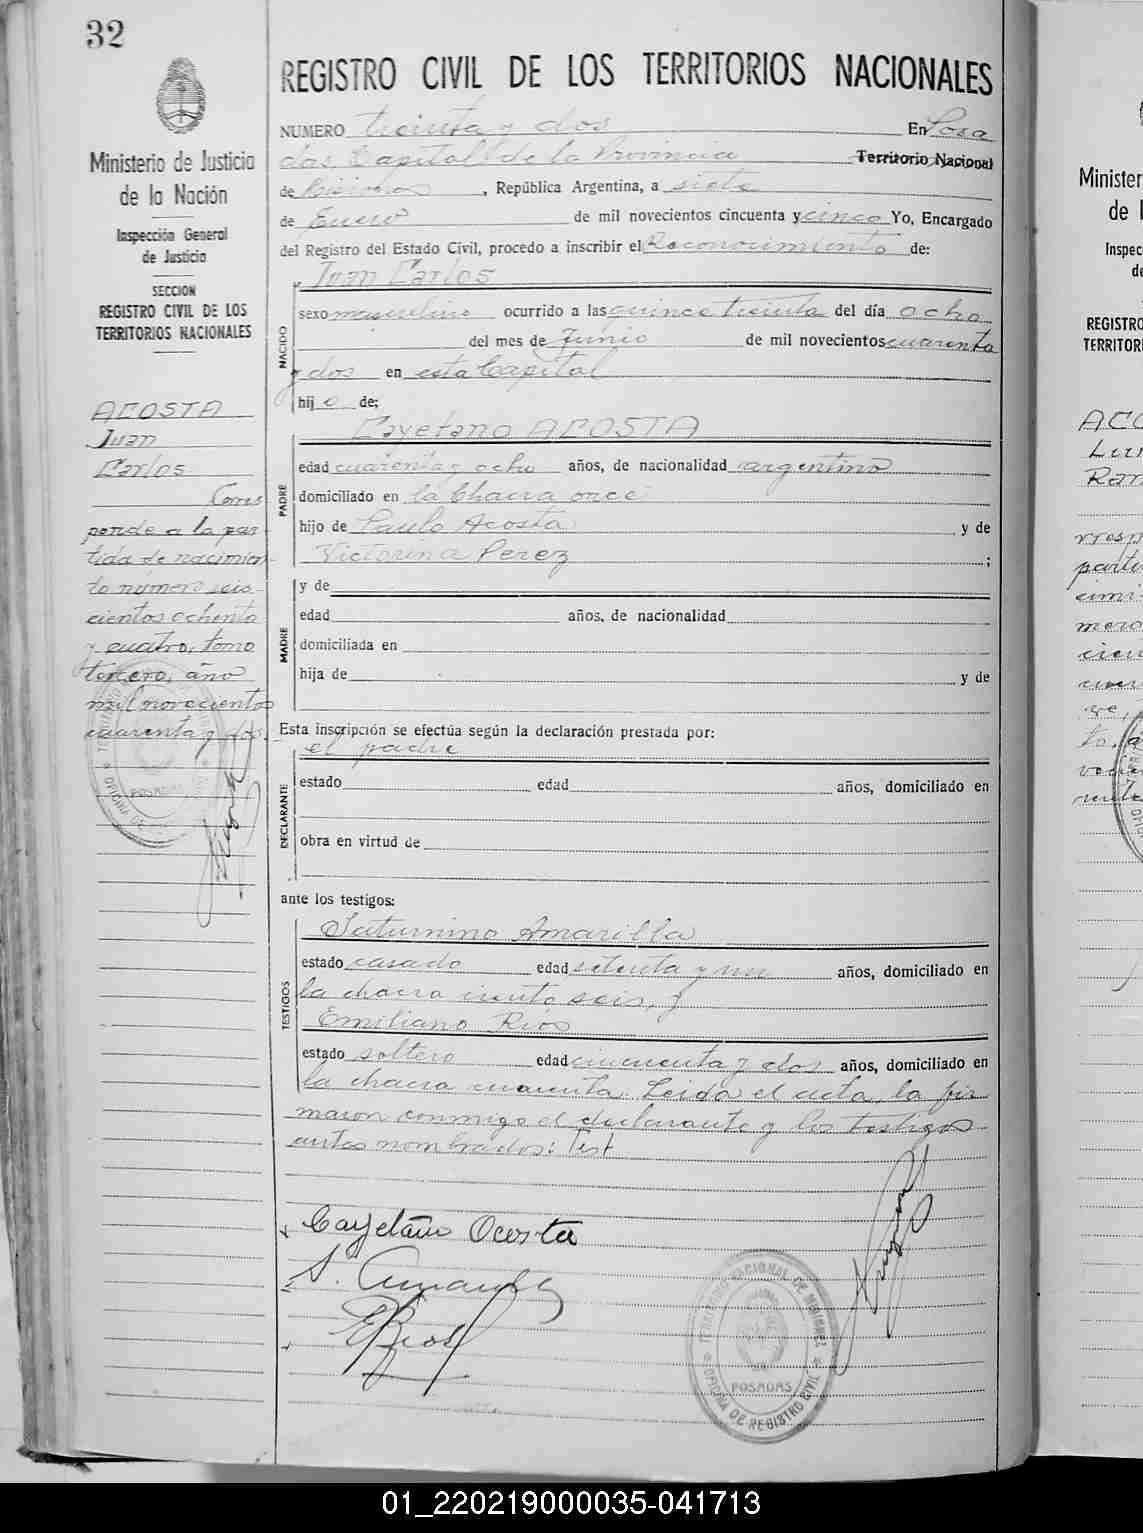 32
Ministerio de Justicia
de la Nación
Inspección General
de Justicia
SECCION
REGISTRO CIVIL DE LOS
TERRITORIOS NACIONALES
ACOSTA
Juan
Carlos
Corres
ponde a la par-
tida de nacimien-
to número seis-
cientos ochenta
y cuatro, tomo
tercero, año
mil novecientos
cuarenta y dos.
POSADAS
REGISTRO CIVIL DE LOS TERRITORIOS NACIONALES
NUMERO treinta y dos En Posa
das, Capital de la Provincia Territorio Nacional
de Misiones, República Argentina, a siete
de Enero de mil novecientos cincuenta y cinco Yo, Encargado
del Registro del Estado Civil, procedo a inscribir el Reconocimiento de:
NACIDO
Juan Carlos
sexo masculino ocurrido a las quince treinta del día ocho
del mes de Junio de mil novecientos cuarenta
y dos en esta Capital
hijo de;
PADRE
Cayetano ACOSTA
edad cuarenta y ocho años, de nacionalidad argentino
domiciliado en la Chacra once
hijo de Paulo Acosta y de
Victorina Perez ;
MADRE
y de
edad años, de nacionalidad
domiciliada en
hija de y de
Esta inscripción se efectúa según la declaración prestada por:
el padre
DECLARANTE
estado edad años, domiciliado en
obra en virtud de
ante los testigos:
TESTIGOS
Saturnino Amarilla
estado casado edad setenta y un años, domiciliado en
la chacra ciento seis, y
Emiliano Rios
estado soltero edad cincuenta y dos años, domiciliado en
la chacra cuarenta. Leida el acta, la fir
maron conmigo el declarante y los testigos
antes nombrados: Test
Cayetano Acosta
S. Amarilla
E Rios
TERRITORIO NACIONAL DE MISIONES
POSADAS
OFICINA DE REGISTRO CIVIL
Minister
de l
Inspec
de
REGISTRO
TERRITORI
ACO
Lui
Ram
01_220219000035-041713